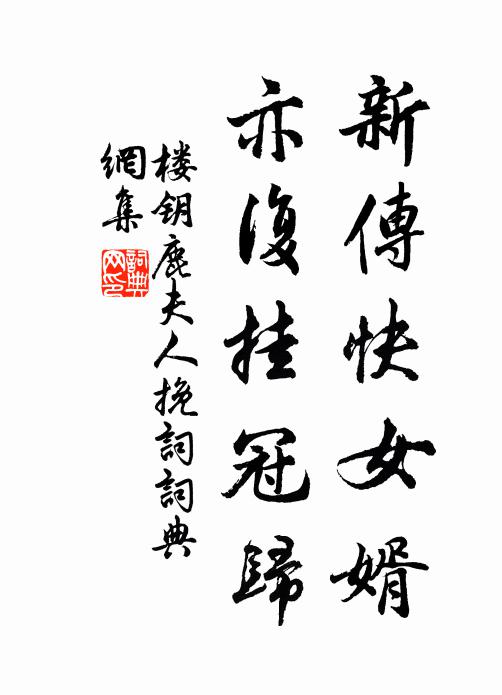 新傳快女婿
亦復挂冠歸
楼钥鹿夫人挽詞詞典
網集
詞典网印